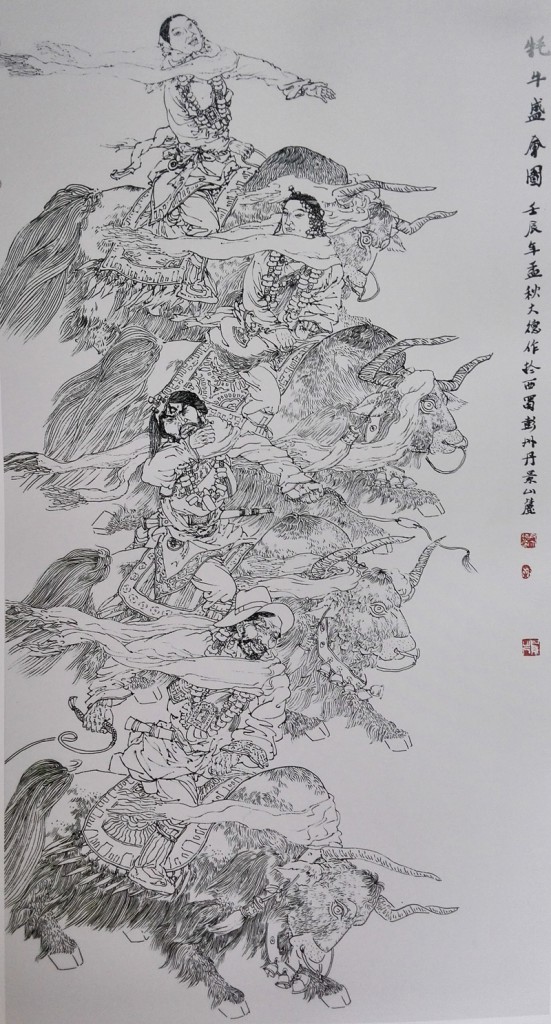 牦牛盛會圖 壬辰年孟秋大德作於西蜀彭州丹景山麓